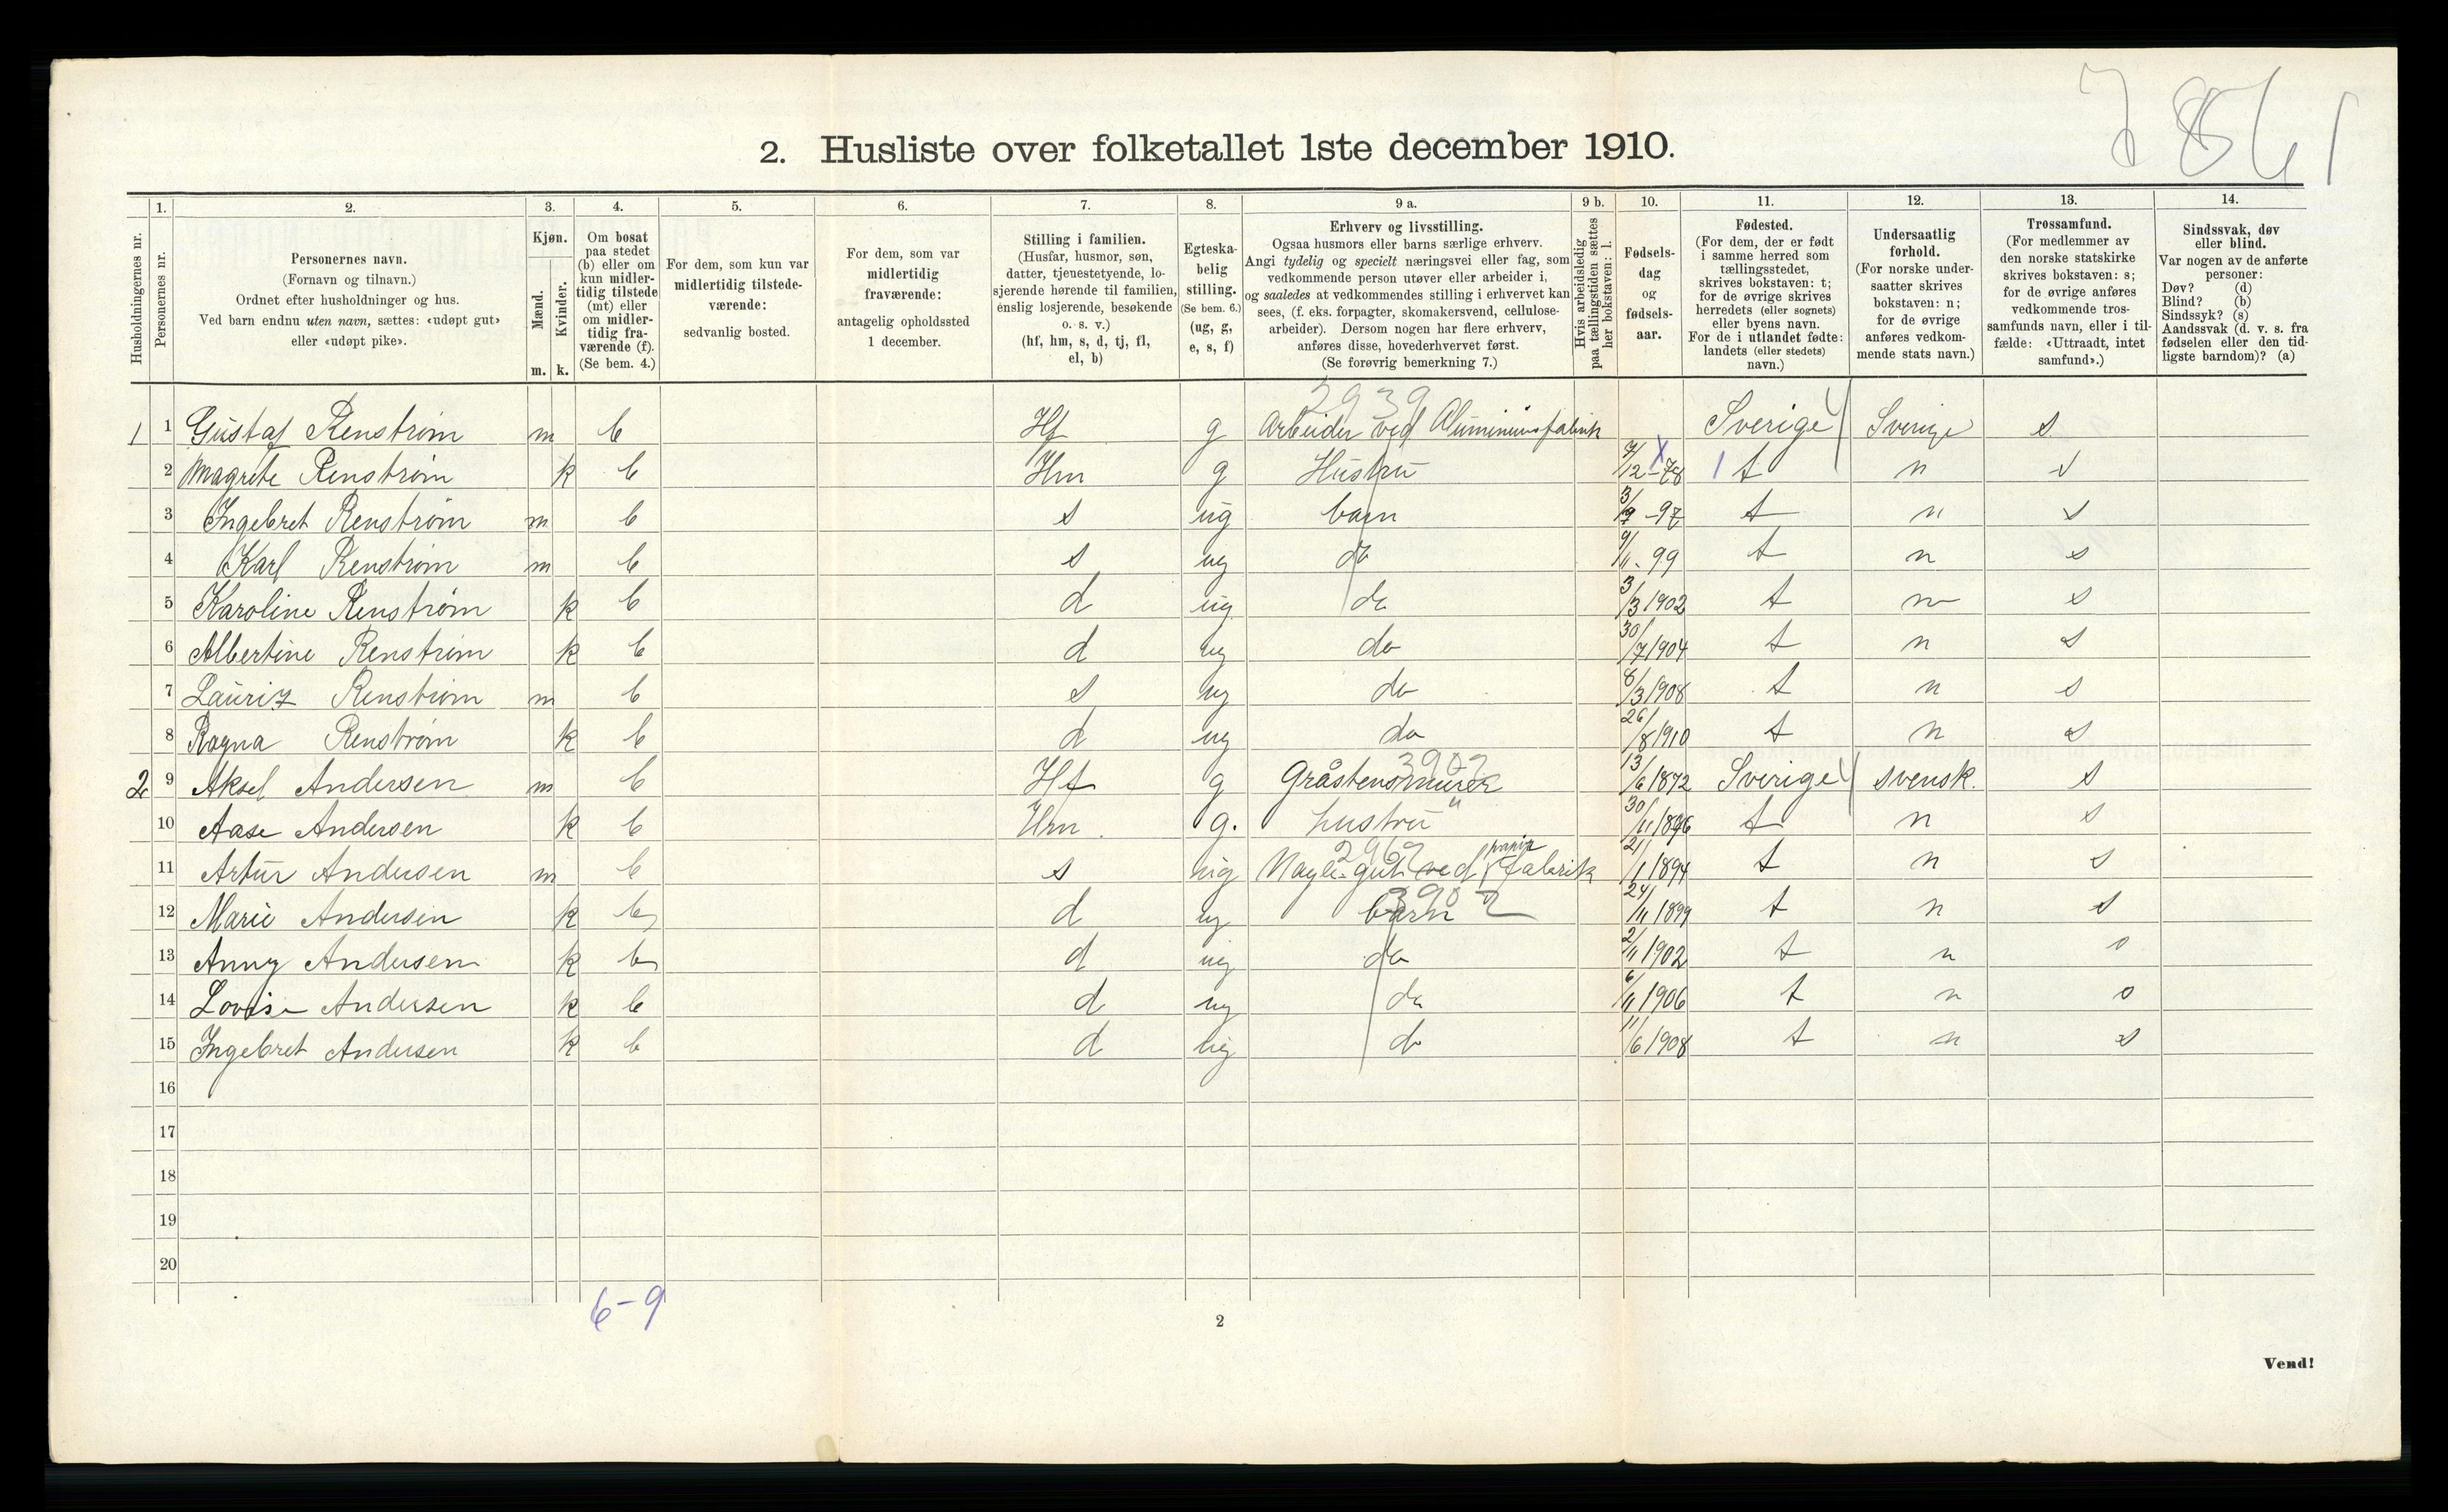 7861
2. Husliste over folketallet 1ste december 1910.
1. 2. 3. 4. 5. 6. 7. 8. 9 a. 9 b. 10. 11. 12. 13. 14.
Husholdningernes nr.
Personernes nr.
Personernes navn.
(Fornavn og tilnavn.)
Ordnet efter husholdninger og hus.
Ved barn endnu uten navn, sættes: «udøpt gut»
eller «udøpt pike».
Kjøn.
Mænd.
Kvinder.
m. k.
Om bosat
paa stedet
(b) eller om
kun midler-
tidig tilstede
(mt) eller
om midler-
tidig fra-
værende (f).
(Se bem. 4.)
For dem, som kun var
midlertidig tilstede-
værende:
sedvanlig bosted.
For dem, som var
midlertidig
fraværende:
antagelig opholdssted
1 december.
Stilling i familien.
(Husfar, husmor, søn,
datter, tjenestetyende, lo-
sjerende hørende til familien,
enslig losjerende, besøkende
o. s. v.)
(hf, hm, s, d, tj, fl,
el, b)
Egteska-
belig
stilling.
(Se bem. 6.)
(ug, g,
e, s, f)
Erhverv og livsstilling.
Ogsaa husmors eller barns særlige erhverv.
Angi tydelig og specielt næringsvei eller fag, som
vedkommende person utøver eller arbeider i,
og saaledes at vedkommendes stilling i erhvervet kan
sees, (f. eks. forpagter, skomakersvend, cellulose-
arbeider). Dersom nogen har flere erhverv,
anføres disse, hovederhvervet først.
(Se forøvrig bemerkning 7.)
Hvis arbeidsledig
paa tællingstiden sættes
her bokstaven: l.
Fødsels-
dag
og
fødsels-
aar.
Fødested.
(For dem, der er født
i samme herred som
tællingsstedet,
skrives bokstaven: t;
for de øvrige skrives
herredets (eller sognets)
eller byens navn.
For de i utlandet fødte:
landets (eller stedets)
navn.)
Undersaatlig
forhold.
(For norske under-
saatter skrives
bokstaven: n;
for de øvrige
anføres vedkom-
mende stats navn.)
Trossamfund.
(For medlemmer av
den norske statskirke
skrives bokstaven: s;
for de øvrige anføres
vedkommende tros-
samfunds navn, eller i til-
fælde: «Uttraadt, intet
samfund».)
Sindssvak, døv
eller blind.
Var nogen av de anførte
personer:
Døv? (d)
Blind? (b)
Sindssyk? (s)
Aandssvak (d. v. s. fra
fødselen eller den tid-
ligste barndom)? (a)
2939
1 1 Gustaf Renstrøm m b Hf g Arbeider ved Aluminiumsfabrik Sverige Sverige s
2 Magrete Renstrøm k b Hm g Hustru 7/12-78 t n s
3 Ingebret Renstrøm m b s ug barn 3/9-97 t n s
4 Karl Renstrøm m b s ug do 9/11-99 t n s
5 Karoline Renstrøm k b d ug do 3/3 1902 t n s
6 Albertine Renstrøm k b d ug do 30/7 1904 t n s
7 Lauriz Renstrøm m b s ug do 8/3 1908 t n s
8 Ragna Renstrøm k b d ug do 26/8 1910 t n s
3902
2 9 Aksel Andersen m b Hf g Gråstensmurer 13/6 1872 Sverige svensk. s
10 Aase Andersen k b Hm. g. hustru " 30/11 t n s
2962
11 Artur Andersen m b s ug gut ved papir fabrik 21/1 1894 t n s
3902
12 Marie Andersen k b d ug barn 24/11 1899 t n s
13 Anny Andersen k b d ug do 2/11 1902 t n s
14 Lovise Andersen k b d ug do 6/11 1906 t n s
15 Ingebret Andersen k b d ug do 11/6 1908 t n s
16
17
18
19
20
6-9
2
Vend!